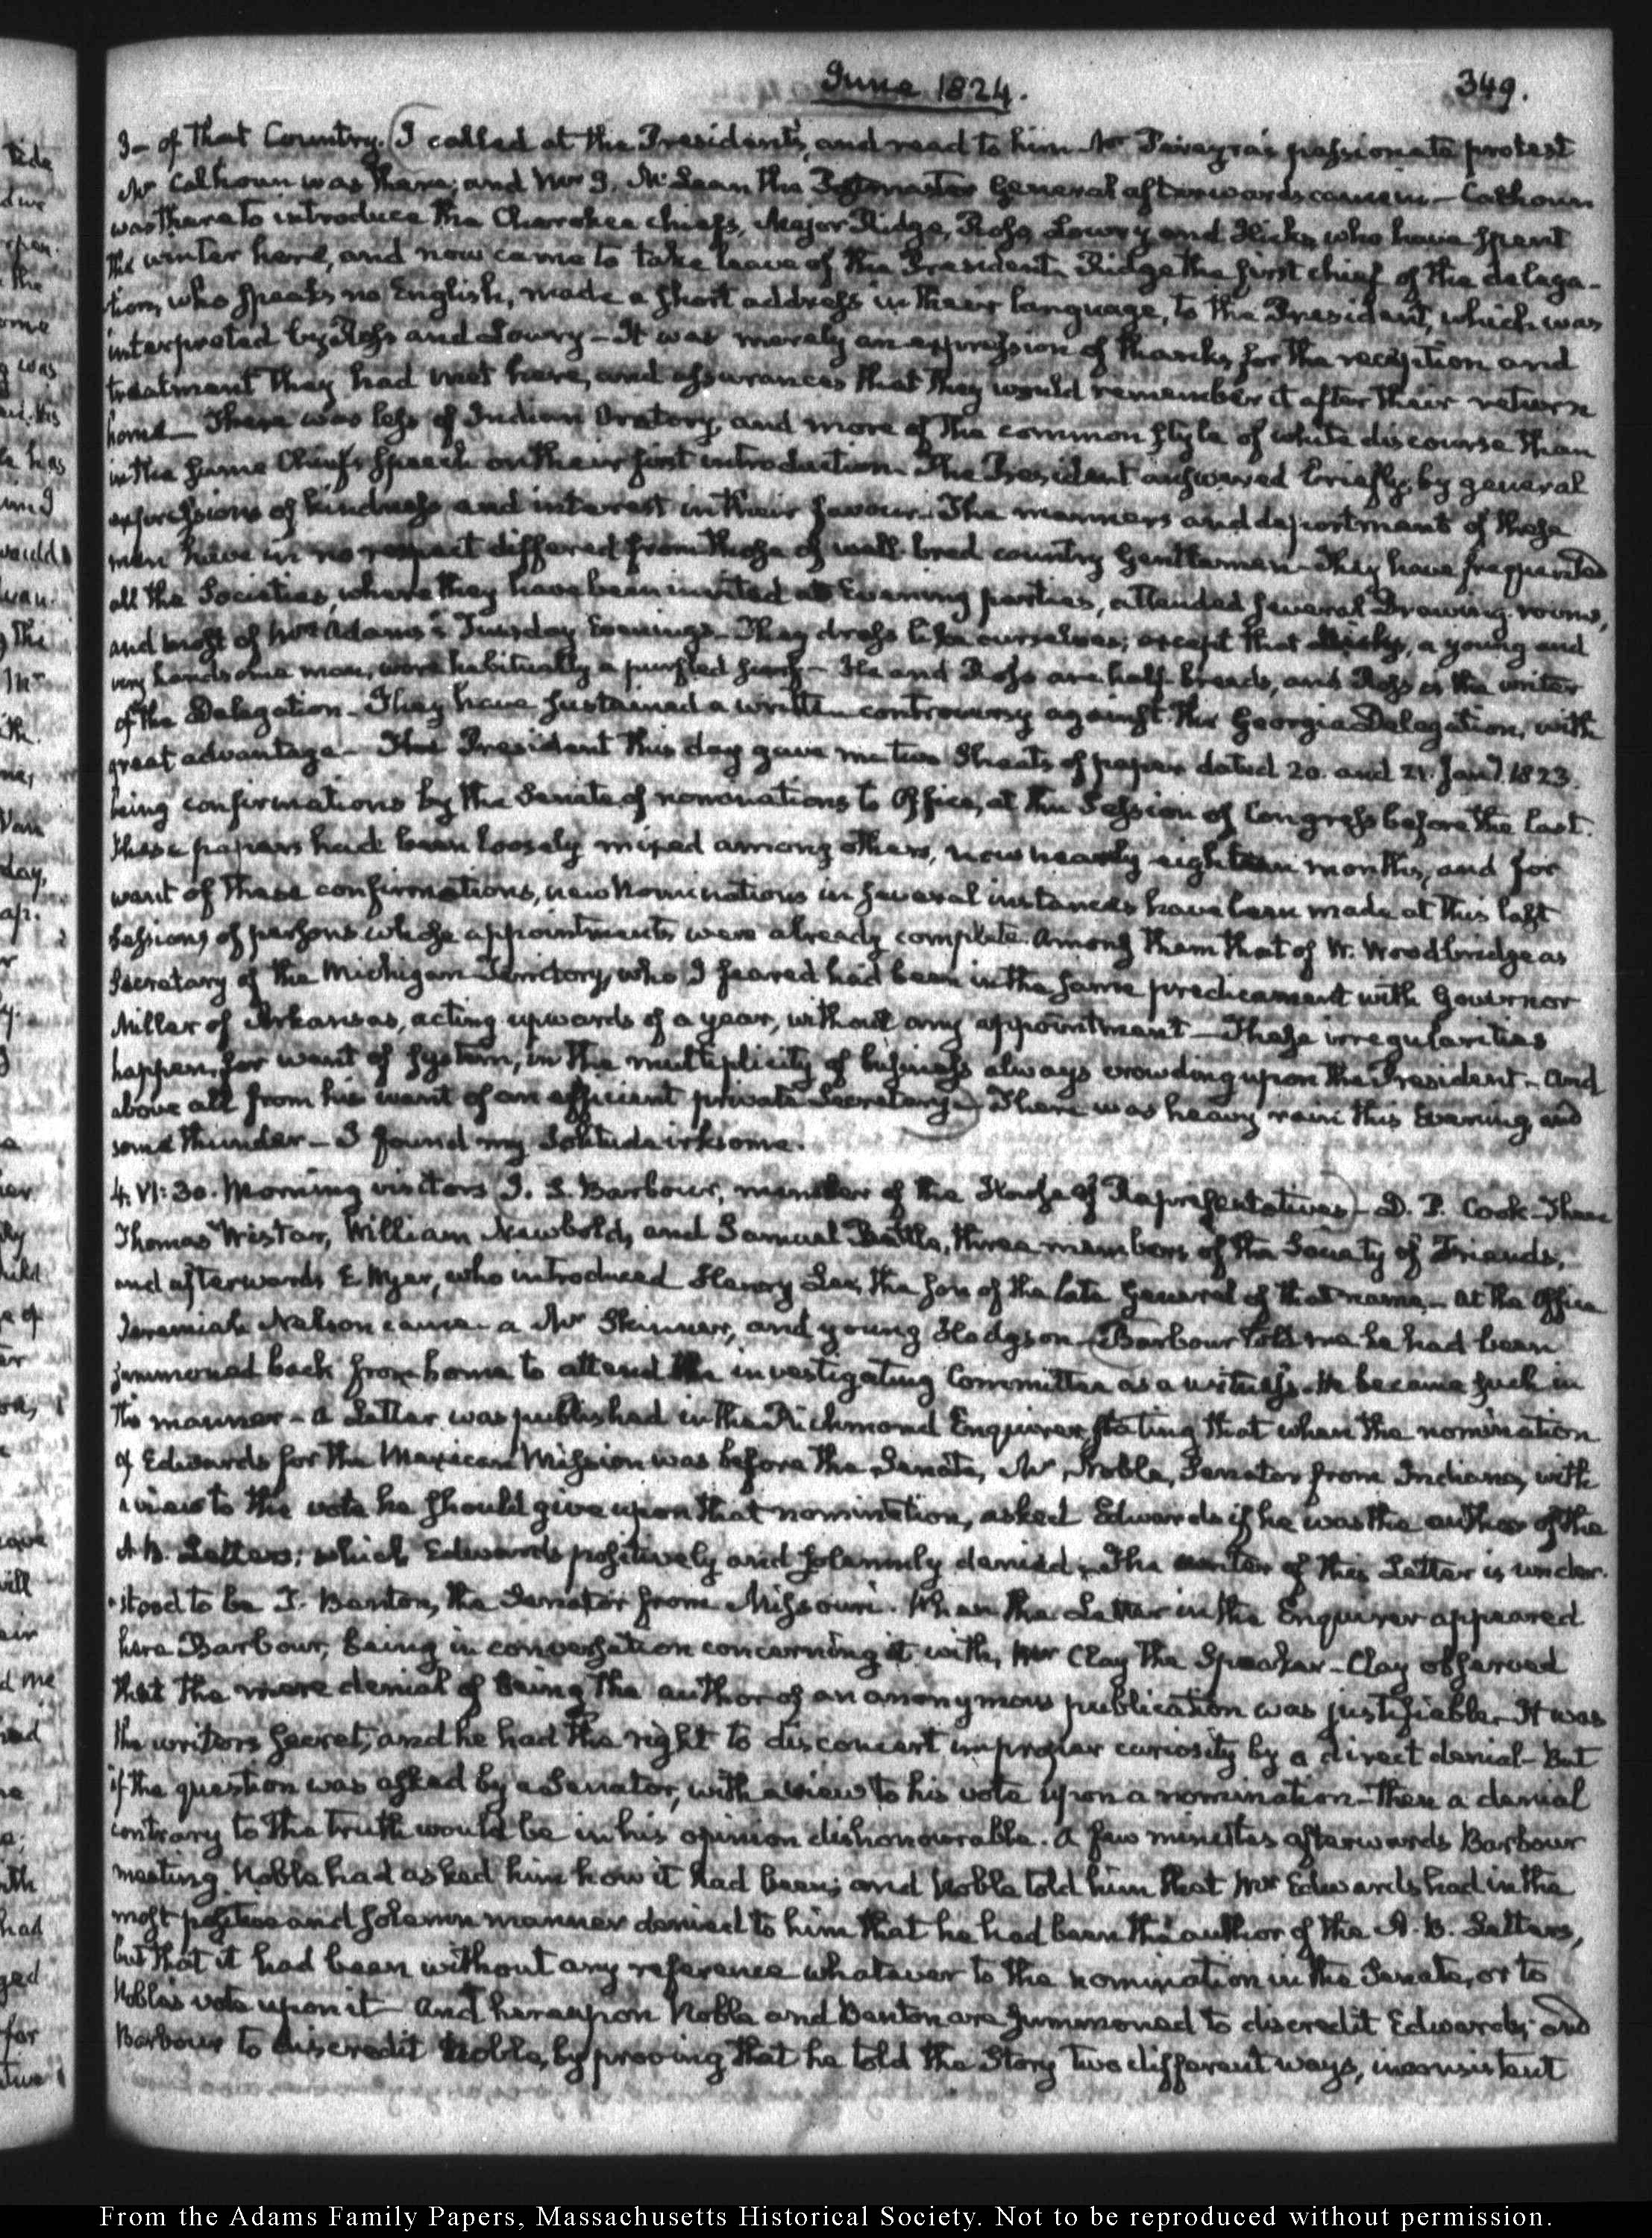 June 1824.
349.
I- of that Country. I called at the President's, and read to him Mr Pereyra's passionate protest
Mr Calhoun was there; and Mr J. McLean the Postmaster General afterwards came in- Calhoun
was there to introduce the Cherokee chiefs, Major Ridge, Ross, Lowry and Hicks, who have spent
the winter here, and now came to take leave of the President. Ridge the first chief of the delega-
tion, who speaks no English, made a short address in their language, to the President, which was
interpreted by Ross and Lowry- It was merely an expression of thanks, for the reception and
treatment they had met here, and assurances that they would remember it after their return
home- There was less of Indian Oratory, and more of the common style of white discourse than
in the same Chief's speech on their first introduction. The President answered briefly, by general
expressions of kindness and interest in their favour. The manners and deportment of these
men have in no respect differed from those of well-bred country Gentlemen- They have frequented
all the Societies, where they have been invited at Evening parties, attended several Drawing-rooms,
and most of Mrs Adams's Tuesday Evenings- They dress like ourselves; except that Hicks, a young and
very handsome man, wore habitually a purfled scarf- He and Ross are half-breeds, and Ross is the writer
of the Delegation- They have sustained a written controversy against the Georgia Delegation, with
great advantage- The President this day gave me two sheets of paper dated 20. and 21. Jany. 1823.
being confirmations by the Senate of nominations to Office, at the Session of Congress before the last.
these papers had been loosely mixed among others, now nearly eighteen months, and for
want of these confirmations, new Nominations in several instances have been made at this last
Session, of persons whose appointments were already complete. Among them that of W. Woodbridge as
Secretary of the Michigan Territory, who I feared had been in the same predicament with Governor
Miller of Arkansas, acting upwards of a year, without any appointment- These irregularities
happen, for want of system, in the multiplicity of business always crowding upon the President- And
above all from his want of an efficient private Secretary- There was heavy rain this Evening, and
some thunder- I found my Solitude irksome.
4. VI:30. Morning visitors J. S. Barbour, member of the House of Representatives- D. P. Cook- Then
Thomas Wistar, William Newbold, and Samuel Bettle, three members of the Society of Friends,
and afterwards E. Wyer, who introduced Henry Lee, the son of the late General of that name- At the Office
Jeremiah Nelson came- a Mr Skinner, and young Hodgson- Barbour told me he had been
summoned back from home to attend the investigating Committee as a witness. He became such in
this manner- a Letter was published in the Richmond Enquirer, stating that when the nomination
of Edwards for the Mexican Mission was before the Senate, Mr Noble, Senator from Indiana, with
a view to the vote he should give upon that nomination, asked Edwards if he was the author of the
A.B. Letters; which Edwards positively and solemnly denied. The writer of this Letter is under-
stood to be T. Benton, the Senator from Missouri. When the Letter in the Enquirer appeared
here Barbour, being in conversation concerning it with, Mr Clay the Speaker- Clay observed
that the mere denial of being the author of an anonymous publication was justifiable- It was
the writers secret, and he had the right to disconcert improper curiosity by a direct denial- But
if the question was asked by a Senator, with a view to his vote upon a nomination- then a denial
contrary to the truth would be in his opinion dishonourable. A few minutes afterwards Barbour
meeting Noble had asked him how it had been; and Noble told him that Mr Edwards had in the
most positive and solemn manner denied to him that he had been the author of the A. B. Letters,
but that it had been without any reference whatever to the nomination in the Senate, or to
Noble's vote upon it- And hereupon Noble and Benton are summoned to discredit Edwards; and
Barbour to discredit Noble, by proving that he told the Story two different ways, inconsistent
From the Adams Family Papers, Massachusetts Historical Society. Not to be reproduced without permission.